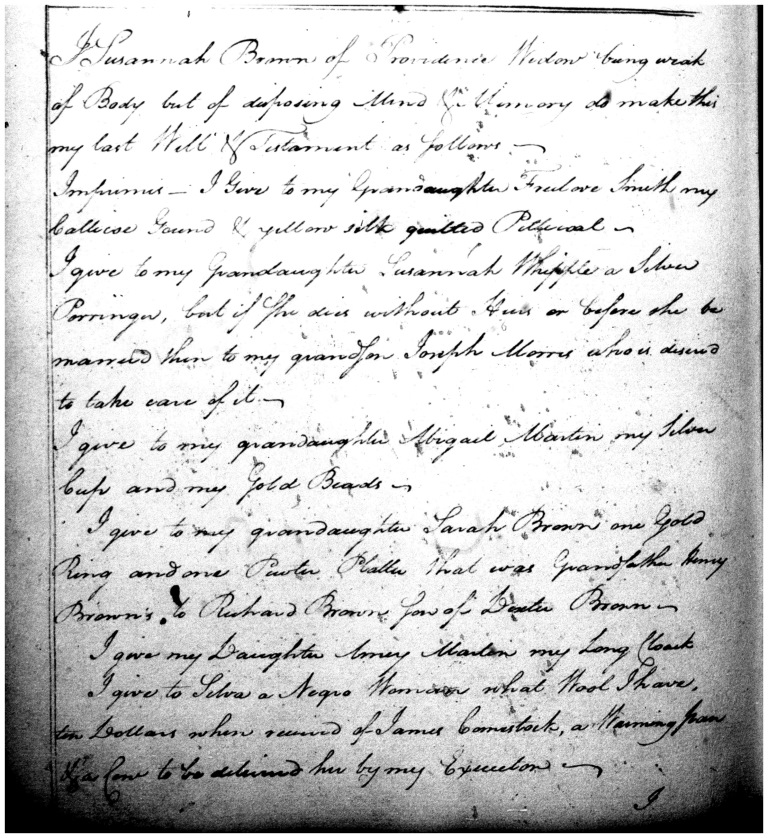 I Susannah Brown of Providence Widow being weak
of Body but of disposing Mind & Memory do make this
my last Will & Testament as follows —
Imprimis — I Give to my Grandaughter Freelove Smith my
Callicoe Gound & yellow silk quilted Petticoat —
I give to my Grandaughter Susannah Whipple a Silver
Porringer, but if She dies without Heirs or before she be
married then to my grandson Joseph Morris who is desired
to take care of it —
I give to my grandaughter Abigail Martin my Silver
Cup and my Gold Beads —
I give to my grandaughter Sarah Brown one Gold
Ring and one Pewter Platter that was Grandfather Henry
Brown's to Richard Brown Son of Dexter Brown —
I give my Daughter Amey Martin my Long Cloack
I give to Silva a Negro Woman what Wool I have,
ten Dollars when received of James Comstock, a Warming pan
& a Cow to be delivered her by my Executor —
I